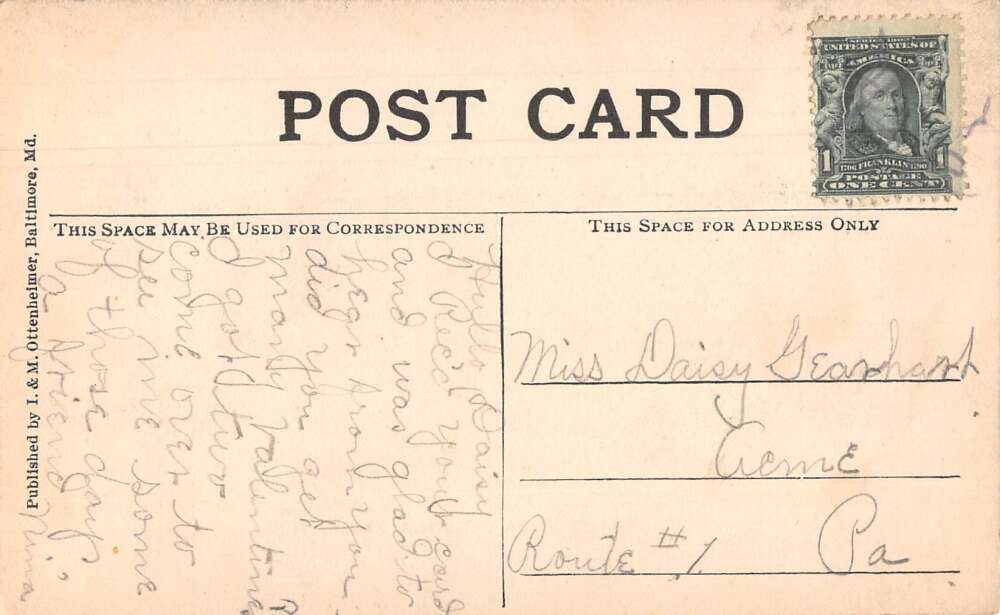 POST CARD
SERIES 1902
UNITED STATES OF
AMERICA
1 1
1706 FRANKLIN 1790
POSTAGE
ONE CENT
Published by I. & M. Ottenheimer, Baltimore, Md.
THIS SPACE MAY BE USED FOR CORRESPONDENCE
Hullo Daisy
I Rec'd your card
and was glad to
hear from you
did you get
many valentines?
I got two
come over to
see me some
of those days
a friend
Nina
THIS SPACE FOR ADDRESS ONLY
Miss Daisy Gearhart
Acme
Route #1 Pa